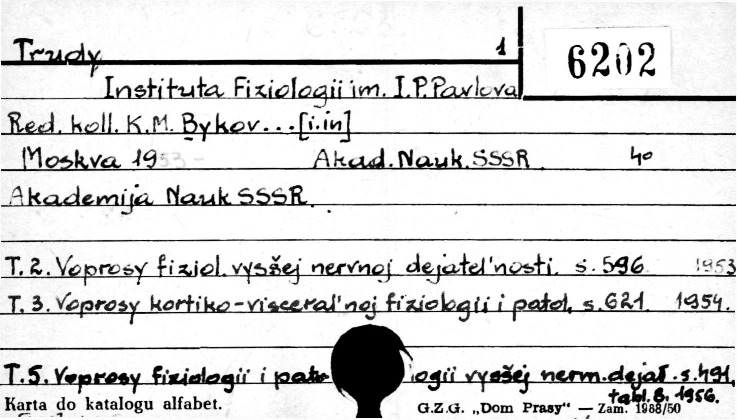 Trudy 1 6202
Instituta Fizjologii im. I.P. Pavlova
Red. koll. K.M. Bykov...[i.in]
Moskva 1953- Akad. Nauk. SSSR 4o
Akademija Nauk SSSR.
T. 2. Voprosy fiziol. vysšej nervnoj dejatel'nosti. s. 596 1953
T. 3. Voprosy kortiko-visceral'noj fiziologii i patol. s. 621. 1954.
T. 5. Voprosy fiziologii i pato ogii vysšej nerm. dejat. s. 491,
tabl. 8. 1956.
Karta do katalogu alfabet. G.Z.G. „Dom Prasy" — Zam. 1988/50